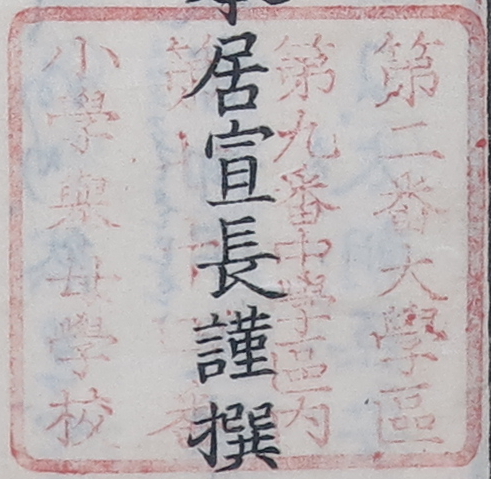 居宣長謹撰
第二番大學區
第九番中學區内
小學與母學校